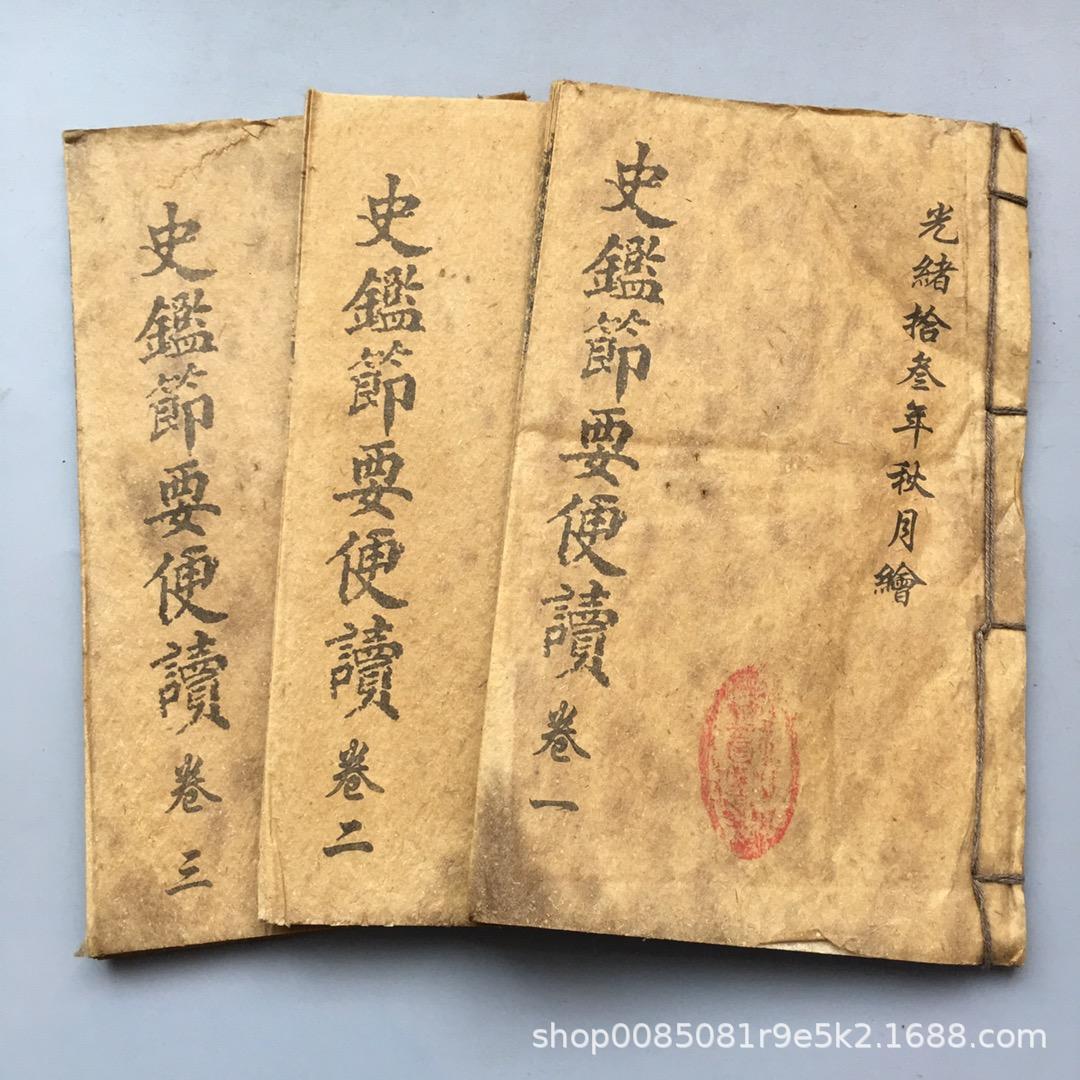 光緒拾叁年秋月繪
史鑑節要便讀 卷一
史鑑節要便讀 卷二
史鑑節要便讀 卷三
shop0085081r9e5k2.1688.com